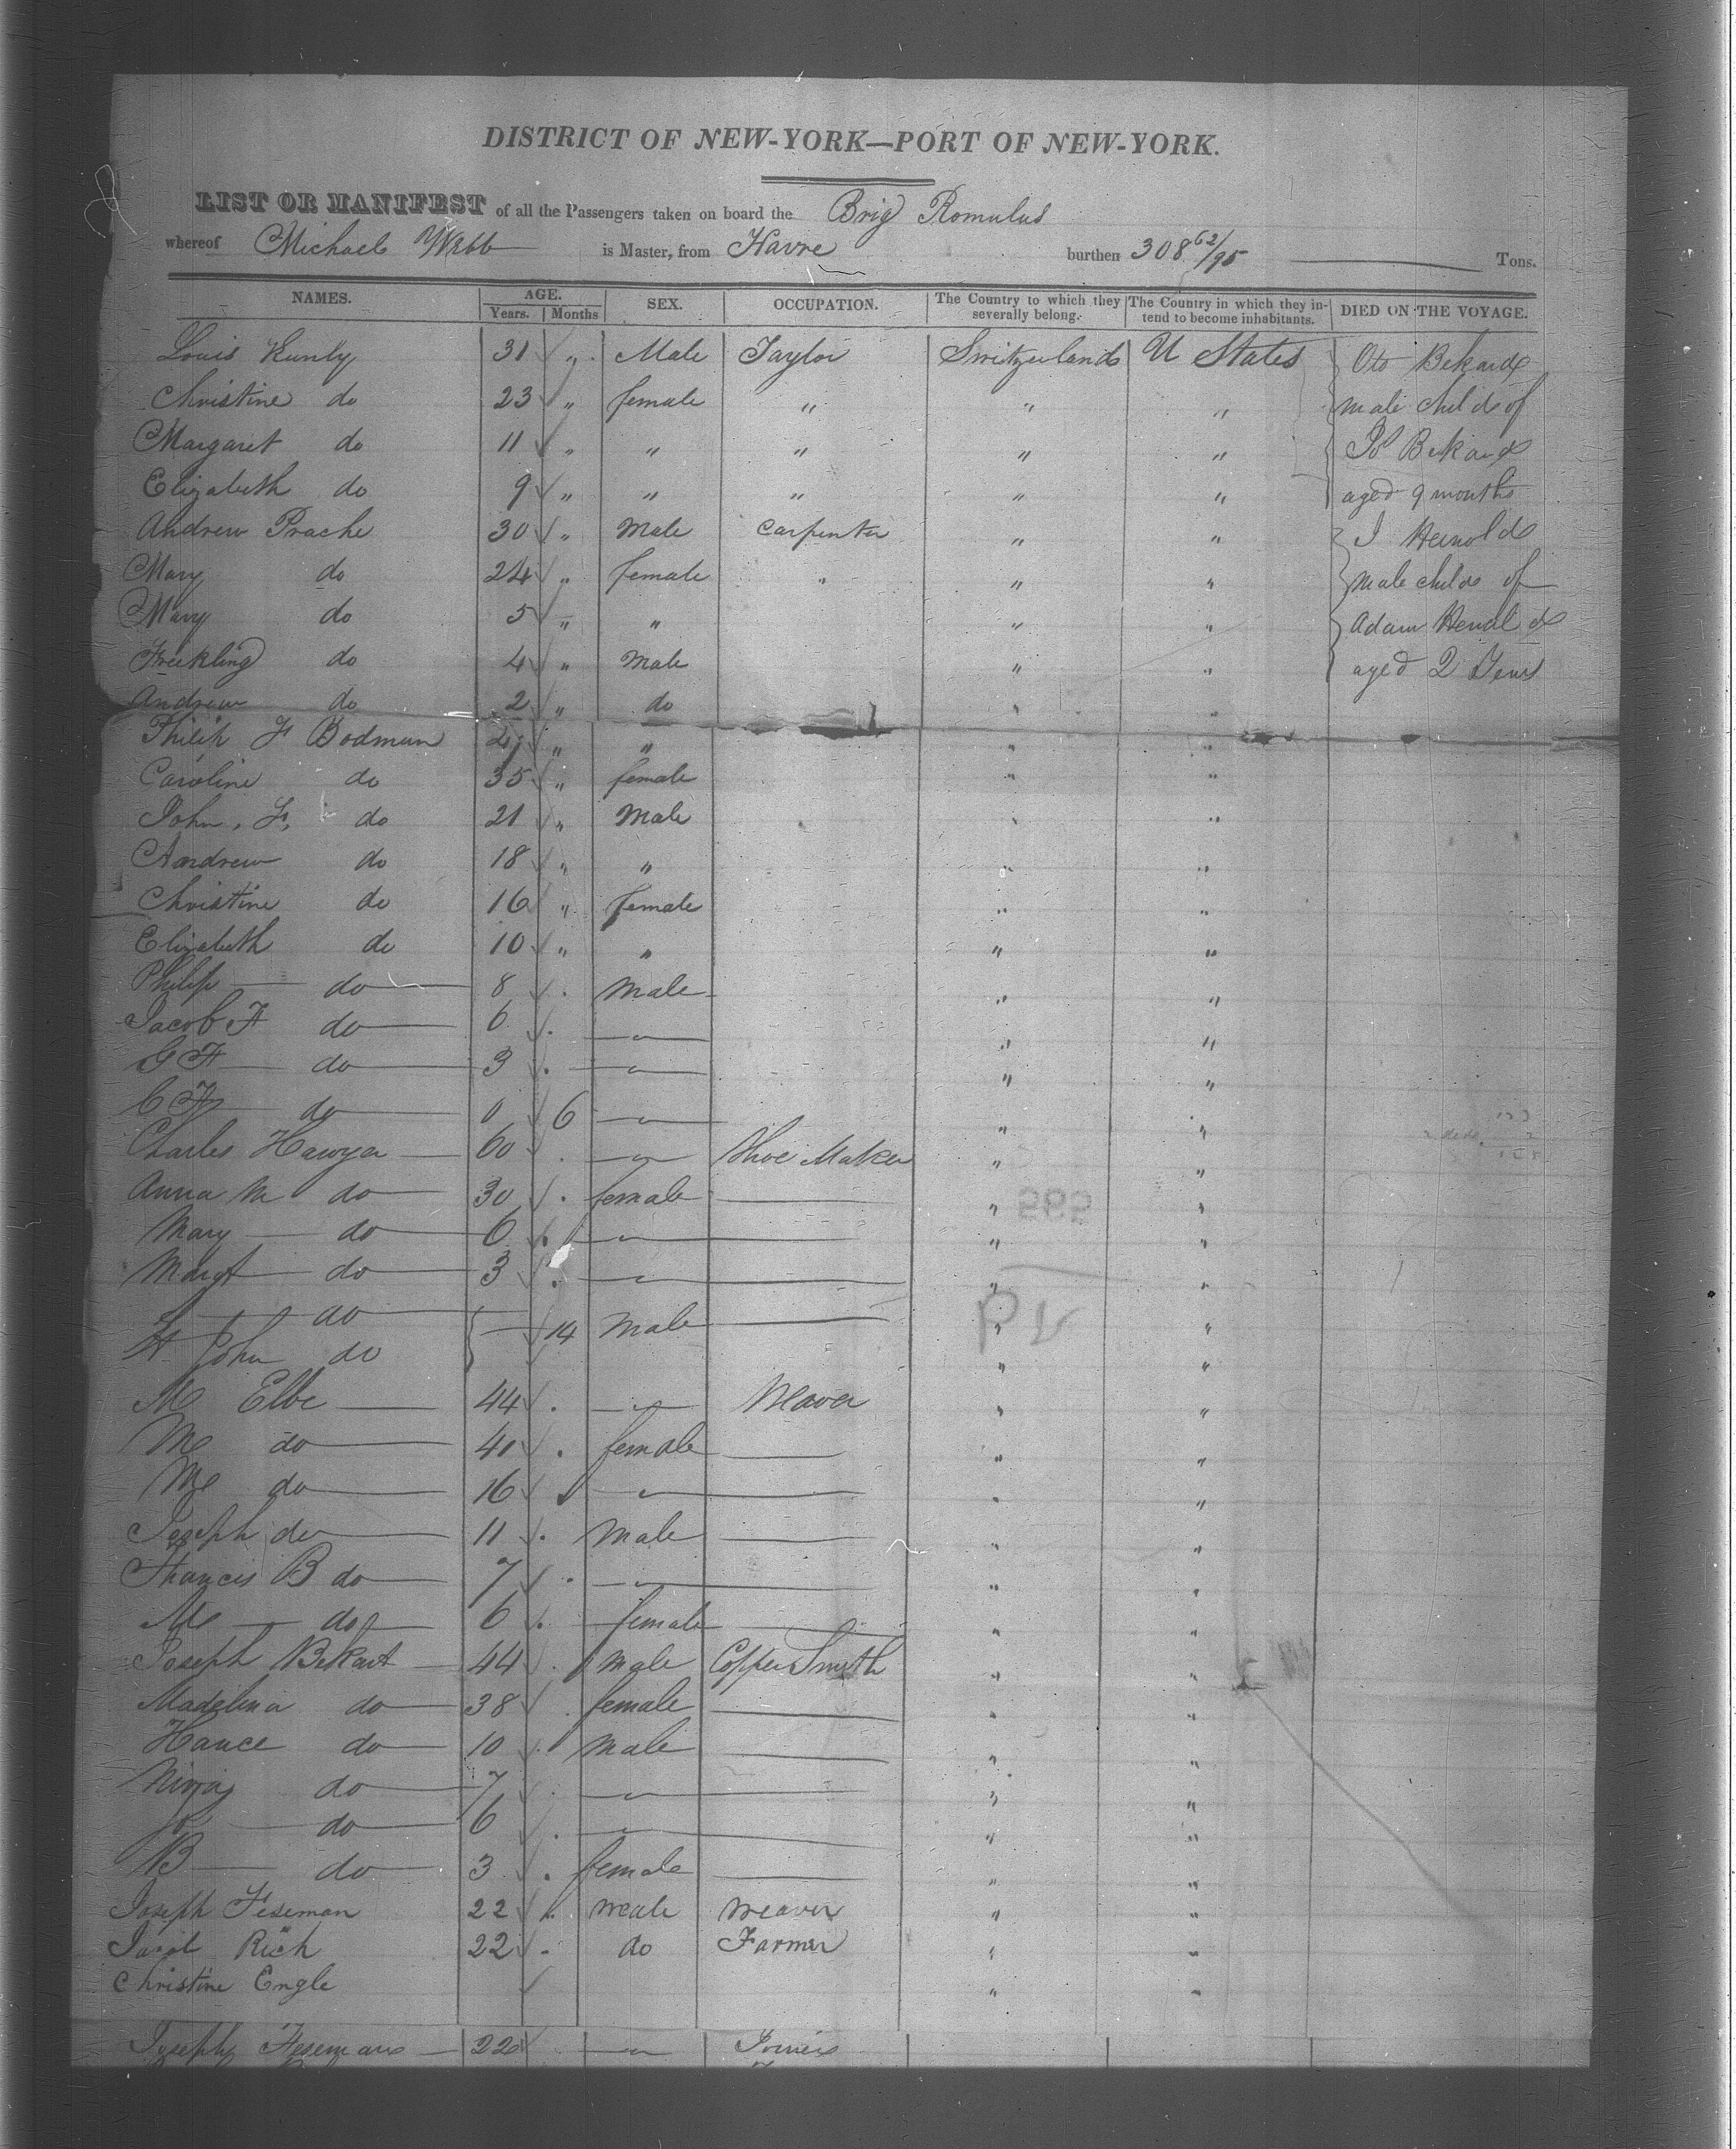 DISTRICT OF NEW-YORK—PORT OF NEW-YORK.
LIST OR MANIFEST of all the Passengers taken on board the Brig Romulus
whereof Michael Webb is Master, from Havre burthen 308 62/95 Tons.
NAMES. AGE. Years. Months SEX. OCCUPATION. The Country to which they severally belong. The Country in which they intend to become inhabitants. DIED ON THE VOYAGE.
Louis 31 " Male Taylor Switzerland U States Oto Bekard
Christine do 23 " female " " " male child of
Margaret do 11 " " " " " Bekard
Elizabeth do 9 " " " " " aged 9 months
Andrew Prache 30 " Male Carpenter " " J Hernold
Mary do 24 " female " " " male child of
Mary do 5 " " " " Adam
do 4 " Male " " aged 2 Years
Andrew do 2 " do " "
Philip F Bodman " " " "
Caroline do 35 " female " "
John, F, do 21 " Male " "
Andrew do 18 " " " "
Christine do 16 " female " "
Elizabeth do 10 " " " "
Philip do 8 male " "
Jacob F do 6 " "
G F do 3 " "
C F do 0 6 " "
Charles Hawya 60 Shoe Maker " "
Anna M do 30 female " "
Mary do 6 " "
Margt do 3 " "
do 14 male " "
John do " "
M Elbe 44 Weaver " "
M do 41 female " "
M do 16 " "
Joseph do 11 male " "
Francis B do 7 " "
M do 6 female " "
Joseph Bekart 44 male Copper Smith " "
Madelina do 38 female " "
Hance do 10 male " "
do 7 " "
do 6 " "
B do 3 female " "
Joseph Feseman 22 male weaver " "
Rich 22 do Farmer " "
Christine Engle " "
Joseph Feseman 22